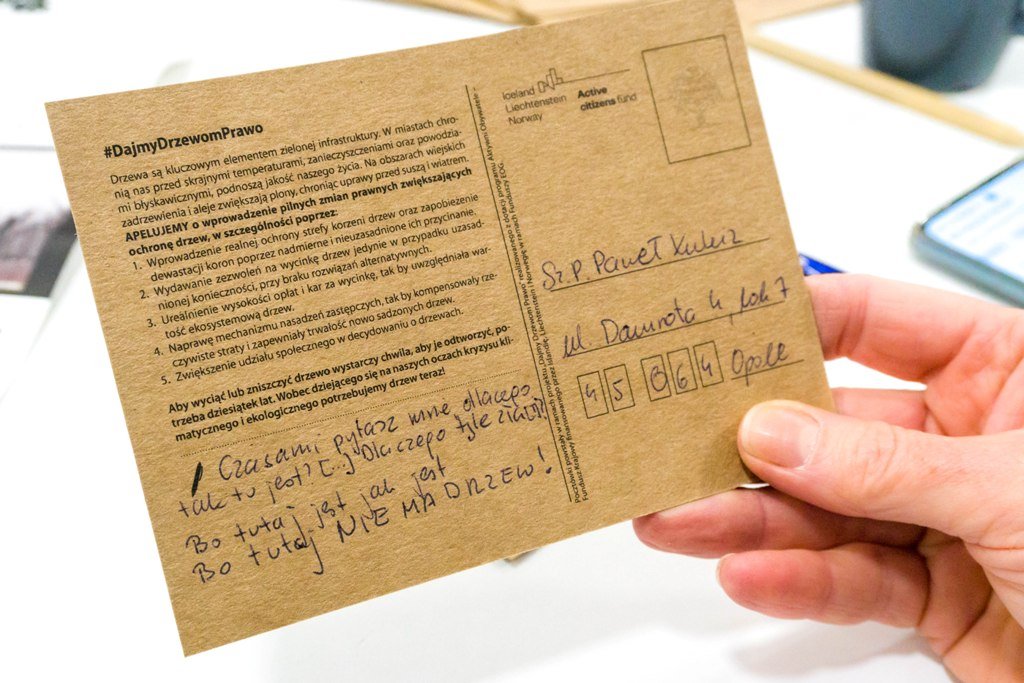 #DajmyDrzewomPrawo
Drzewa są kluczowym elementem zielonej infrastruktury. W miastach chro-
nią nas przed skrajnymi temperaturami, zanieczyszczeniami oraz powodzia-
mi błyskawicznymi, podnoszą jakość naszego życia. Na obszarach wiejskich
zadrzewienia i aleje zwiększają plony, chroniąc uprawy przed suszą i wiatrem.
APELUJEMY o wprowadzenie pilnych zmian prawnych zwiększających
ochronę drzew, w szczególności poprzez:
1. Wprowadzenie realnej ochrony strefy korzeni drzew oraz zapobieżenie
dewastacji koron poprzez nadmierne i nieuzasadnione ich przycinanie.
2. Wydawanie zezwoleń na wycinkę drzew jedynie w przypadku uzasad-
nionej konieczności, przy braku rozwiązań alternatywnych.
3. Urealnienie wysokości opłat i kar za wycinkę, tak by uwzględniała war-
tość ekosystemową drzew.
4. Naprawę mechanizmu nasadzeń zastępczych, tak by kompensowały rze-
czywiste straty i zapewniały trwałość nowo sadzonych drzew.
5. Zwiększenie udziału społecznego w decydowaniu o drzewach.
Aby wyciąć lub zniszczyć drzewo wystarczy chwila, aby je odtworzyć, po-
trzeba dziesiątek lat. Wobec dziejącego się na naszych oczach kryzysu kli-
matycznego i ekologicznego potrzebujemy drzew teraz!
/ Czasami pytasz mnie dlaczego
tak tu jest? [...] Dlaczego tyle
Bo tutaj jest jak jest
Bo tutaj NIE MA DRZEW!
Pocztówki powstały w ramach projektu „Dajmy Drzewom Prawo” realizowanego z dotacji programu Aktywni Obywatele –
Fundusz Krajowy finansowanego przez Islandię, Liechtenstein i Norwegię w ramach Funduszy EOG.
Iceland
Liechtenstein
Norway
Active
citizens fund
Sz. P. Paweł
ul. Damrota 4, pok 7
45 064 Opole